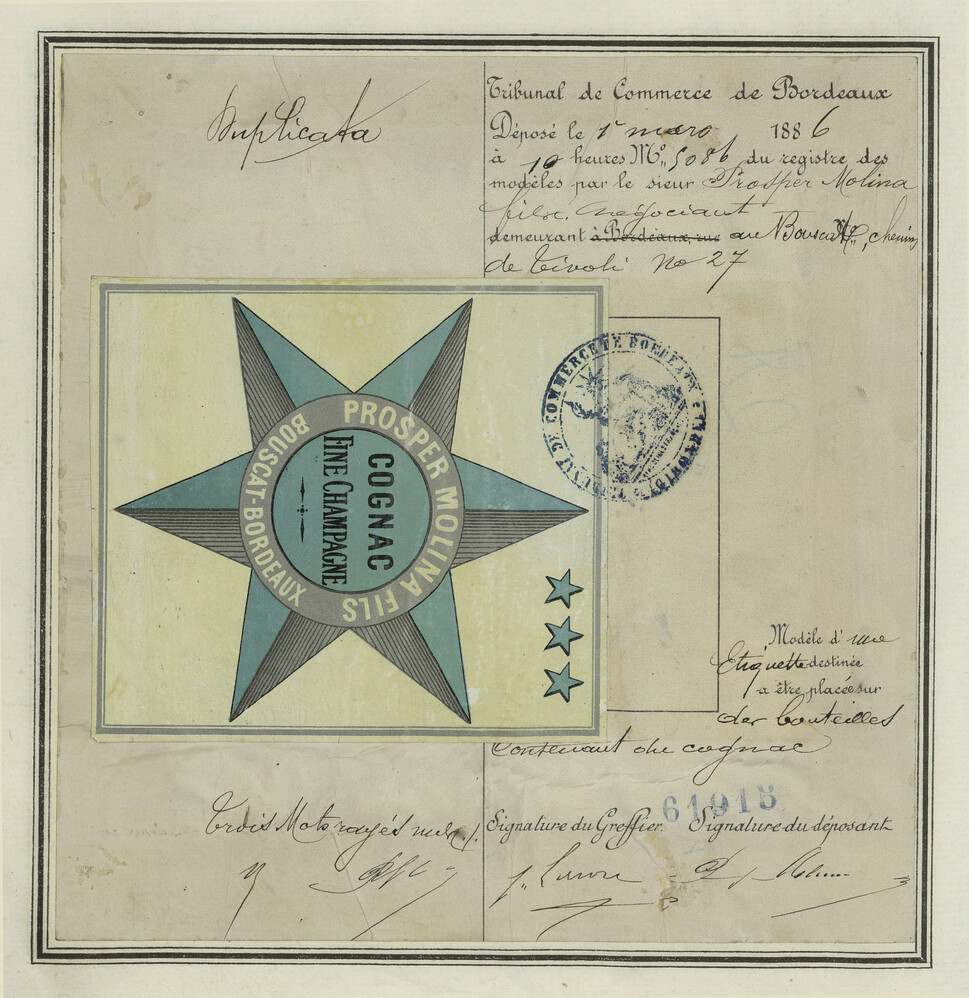 Duplicata
Tribunal de Commerce de Bordeaux
Déposé le 1r mars 1886
à 10 heures No. 5086 du registre des
modèles par le sieur Prosper Molina
fils, négociant
demeurant à Bordeaux, rue au Bouscat, chemin
de Tivoli no 27
PROSPER MOLINA FILS
BOUSCAT-BORDEAUX
COGNAC
FINE CHAMPAGNE
TRIBUNAL DE COMMERCE DE BORDEAUX
Modèle d'une
Etiquette destinée
a être placée sur
des bouteilles
Contenant du cognac
61915
Trois Mots rayés nuls
Signature du Greffier Signature du déposant